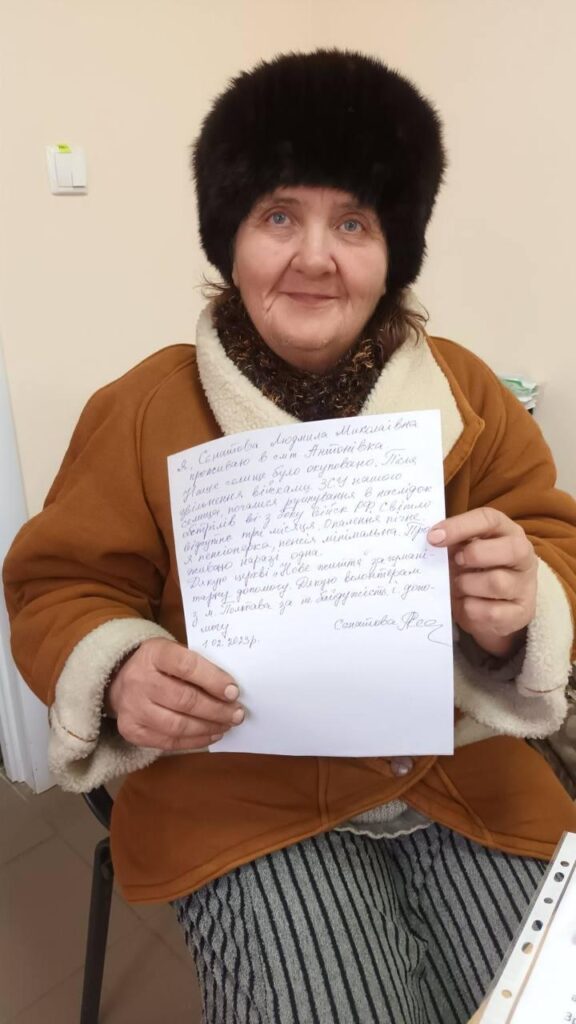 Я, Солатова Людмила Миколаївна
проживаю в смт Антонівка
Наше селище було окуповано. Після
звільнення військами ЗСУ нашого
селища, почалися руйнування в наслідок
обстрілів зі з боку військ РФ. Світло
відсутнє три місяця. Опалення пічне.
Я пенсіонерка, пенсія мінімальна. Про-
живаю наразі одна.
Дякую церкві "Нове життя" за гумані-
тарну допомогу. Дякую волонтерам
з м. Полтава за не байдужість і допо-
могу
1.02.2023р.